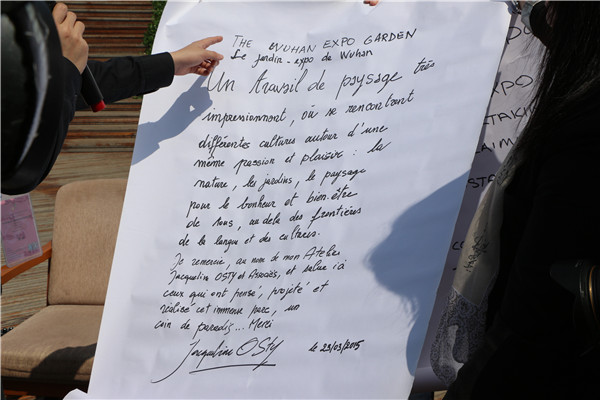 THE WUHAN EXPO GARDEN
Le jardin-expo de Wuhan
Un travail de paysage très
impressionnant, où se rencontrent
différentes cultures autour d'une
même passion et plaisir : la
nature, les jardins, le paysage
pour le bonheur et bien-être
de tous, au delà des frontières
de la langue et des cultures.
Je remercie, au nom de mon Atelier
Jacqueline OSTY et Associés, et salue ici
ceux qui ont pensé, projeté et
réalisé cet immense parc, un
coin de paradis... Merci
Jacqueline OSTY le 23/03/2015
EXPO